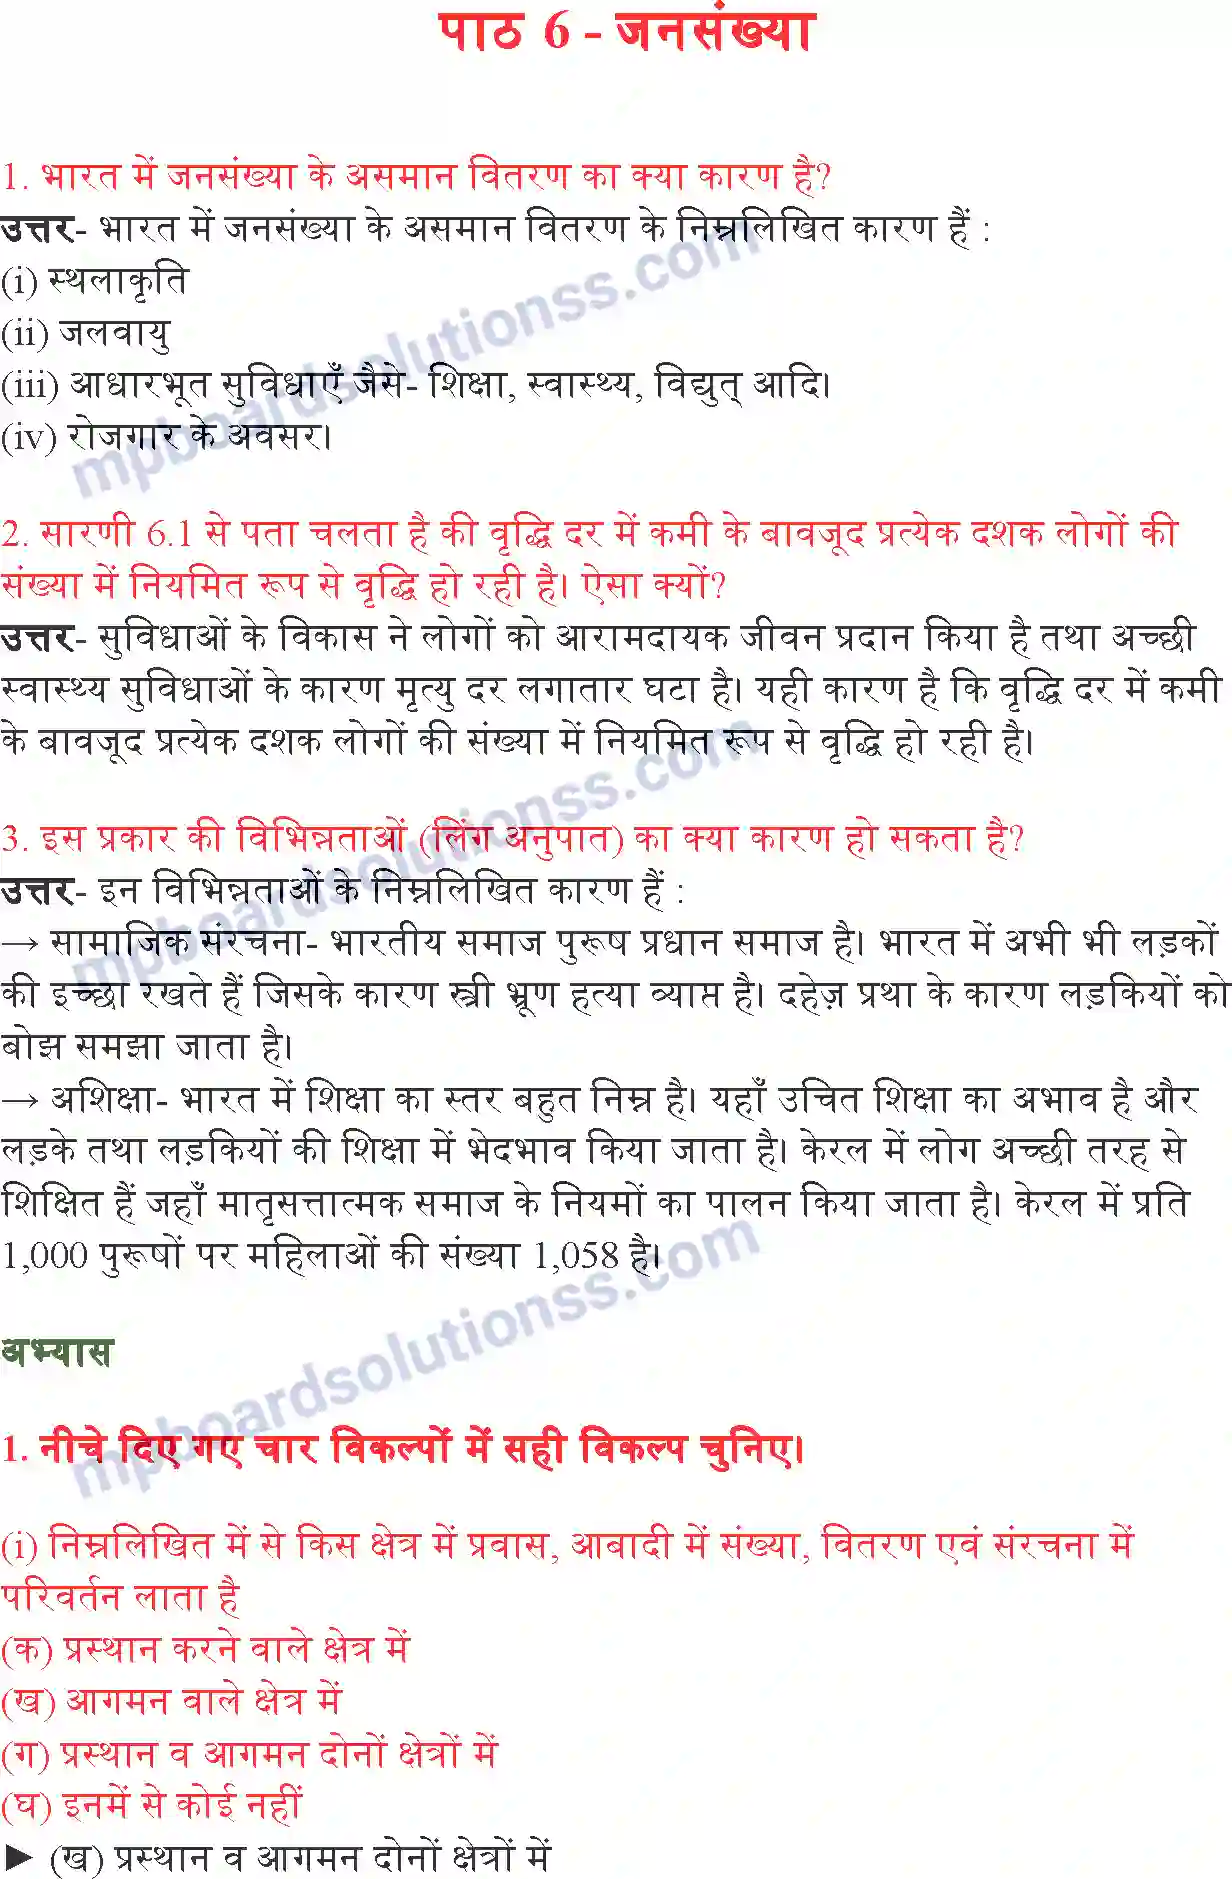 पाठ 6 - जनसंख्या
1. भारत में जनसंख्या के असमान वितरण का क्या कारण है?
उत्तर- भारत में जनसंख्या के असमान वितरण के निम्नलिखित कारण हैं :
(i) स्थलाकृति
(ii) जलवायु
(iii) आधारभूत सुविधाएँ जैसे- शिक्षा, स्वास्थ्य, विद्युत् आदि।
(iv) रोजगार के अवसर।
2. सारणी 6.1 से पता चलता है की वृद्धि दर में कमी के बावजूद प्रत्येक दशक लोगों की
संख्या में नियमित रूप से वृद्धि हो रही है। ऐसा क्यों?
उत्तर- सुविधाओं के विकास ने लोगों को आरामदायक जीवन प्रदान किया है तथा अच्छी
स्वास्थ्य सुविधाओं के कारण मृत्यु दर लगातार घटा है। यही कारण है कि वृद्धि दर में कमी
के बावजूद प्रत्येक दशक लोगों की संख्या में नियमित रूप से वृद्धि हो रही है।
3. इस प्रकार की विभिन्नताओं (लिंग अनुपात) का क्या कारण हो सकता है?
उत्तर- इन विभिन्नताओं के निम्नलिखित कारण हैं :
→ सामाजिक संरचना- भारतीय समाज पुरूष प्रधान समाज है। भारत में अभी भी लड़कों
की इच्छा रखते हैं जिसके कारण स्त्री भ्रूण हत्या व्याप्त है। दहेज़ प्रथा के कारण लड़कियों को
बोझ समझा जाता है।
→ अशिक्षा- भारत में शिक्षा का स्तर बहुत निम्न है। यहाँ उचित शिक्षा का अभाव है और
लड़के तथा लड़कियों की शिक्षा में भेदभाव किया जाता है। केरल में लोग अच्छी तरह से
शिक्षित हैं जहाँ मातृसत्तात्मक समाज के नियमों का पालन किया जाता है। केरल में प्रति
1,000 पुरूषों पर महिलाओं की संख्या 1,058 है।
अभ्यास
1. नीचे दिए गए चार विकल्पों में सही विकल्प चुनिए।
(i) निम्नलिखित में से किस क्षेत्र में प्रवास, आबादी में संख्या, वितरण एवं संरचना में
परिवर्तन लाता है
(क) प्रस्थान करने वाले क्षेत्र में
(ख) आगमन वाले क्षेत्र में
(ग) प्रस्थान व आगमन दोनों क्षेत्रों में
(घ) इनमें से कोई नहीं
► (ख) प्रस्थान व आगमन दोनों क्षेत्रों में
mpboardsolutionss.com
mpboardsolutionss.com
mpboardsolutionss.com